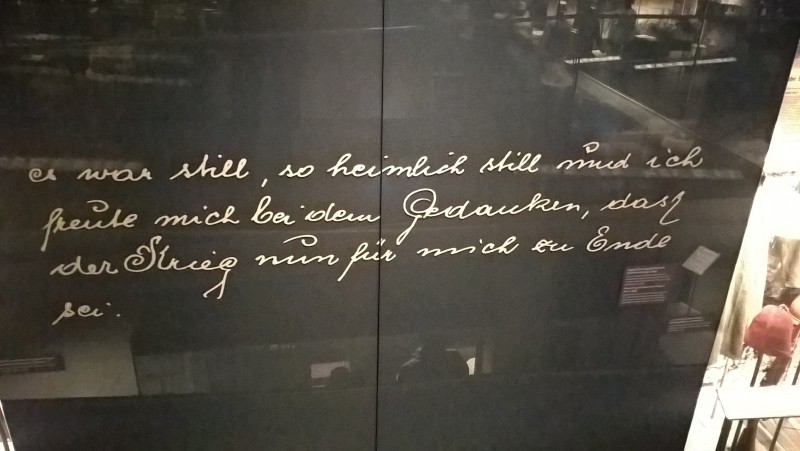 es war still, so heimlich still und ich
freute mich bei dem Gedanken, dass
der Krieg nun für mich zu Ende
sei.